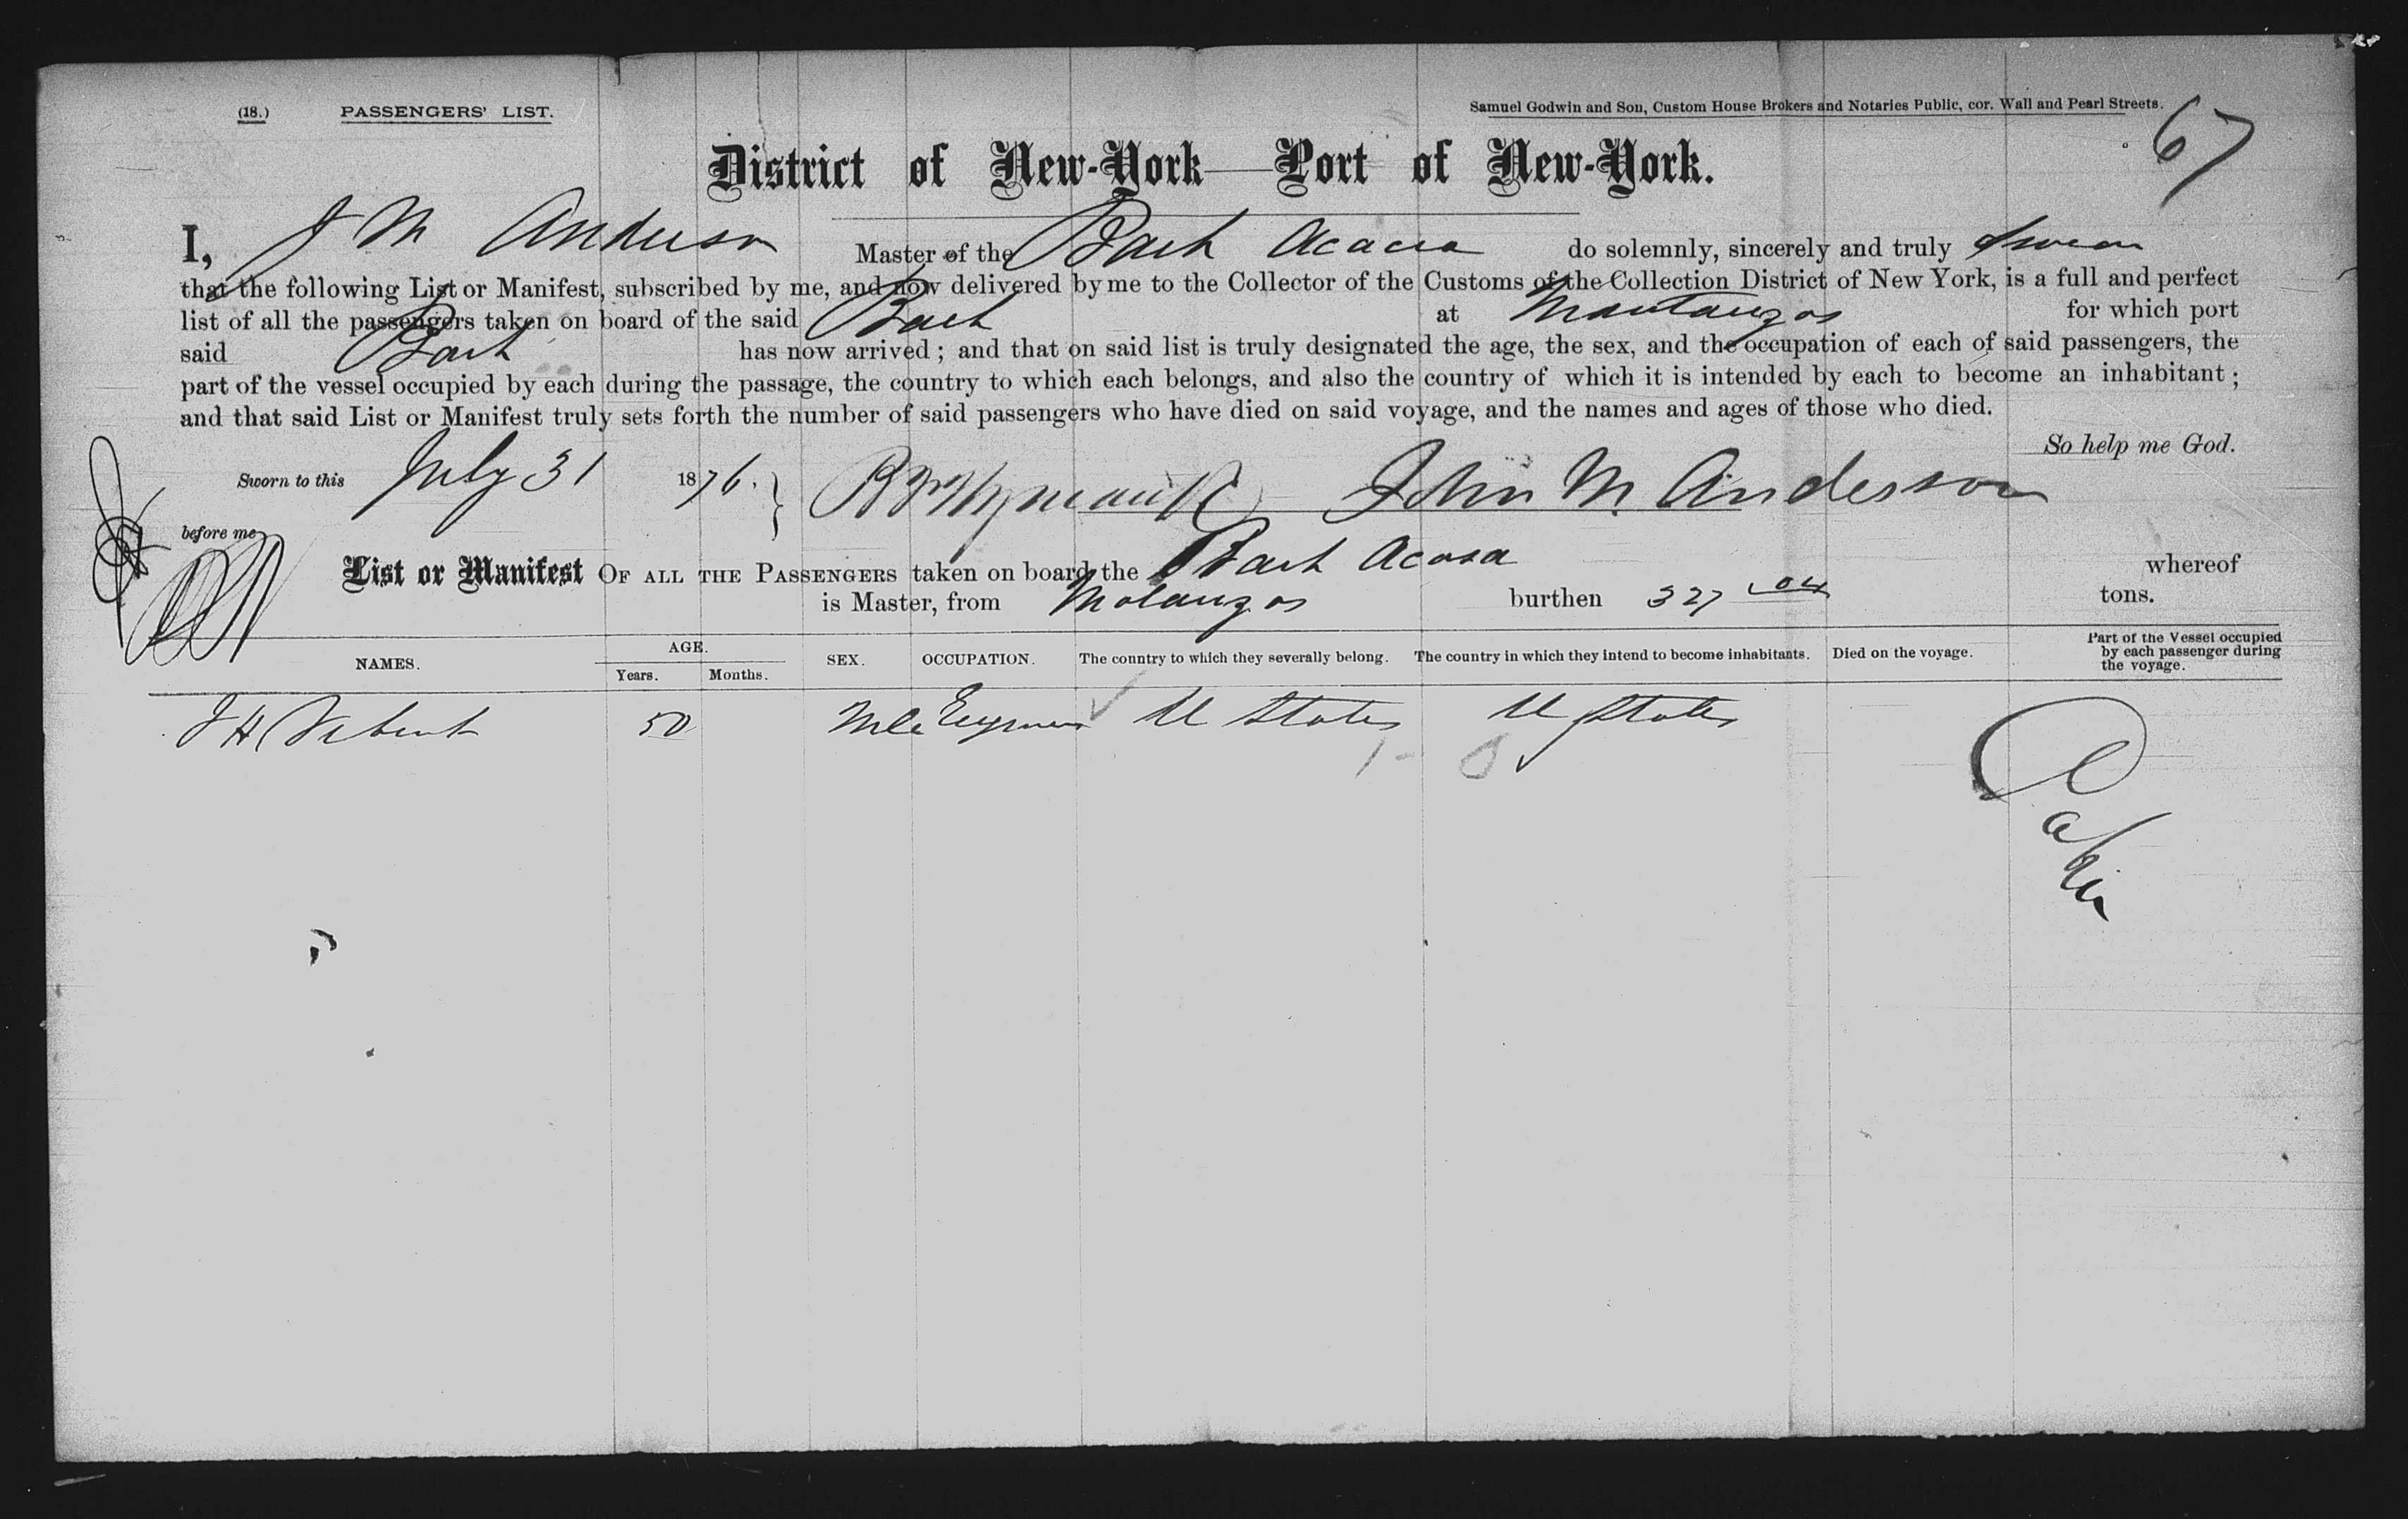 (18.) PASSENGERS' LIST. Samuel Godwin and Son, Custom House Brokers and Notaries Public, cor. Wall and Pearl Streets.
67
District of New-York—Port of New-York.
I, J M Anderson Master of the Bark Acacia do solemnly, sincerely and truly swear
that the following List or Manifest, subscribed by me, and now delivered by me to the Collector of the Customs of the Collection District of New York, is a full and perfect
list of all the passengers taken on board of the said Bark at Mantanzas for which port
said Bark has now arrived; and that on said list is truly designated the age, the sex, and the occupation of each of said passengers, the
part of the vessel occupied by each during the passage, the country to which each belongs, and also the country of which it is intended by each to become an inhabitant;
and that said List or Manifest truly sets forth the number of said passengers who have died on said voyage, and the names and ages of those who died.
So help me God.
Sworn to this July 31 1876. } John M. Anderson
before me
List or Manifest OF ALL THE PASSENGERS taken on board the Bark Acasa whereof
is Master, from Matanzas burthen 327 tons.
NAMES. AGE. Years. Months. SEX. OCCUPATION. The country to which they severally belong. The country in which they intend to become inhabitants. Died on the voyage. Part of the Vessel occupied by each passenger during the voyage.
J H 50 Mle U States U States Cabin
1 - 0